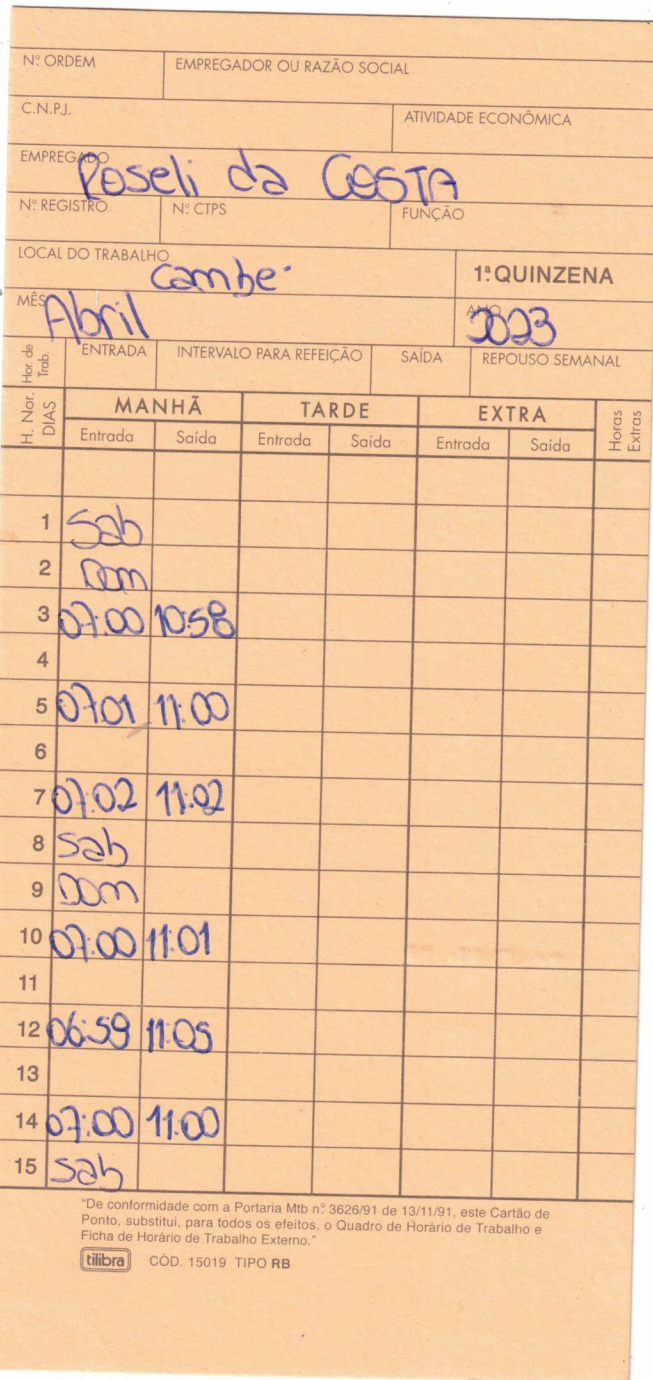 Nº ORDEM EMPREGADOR OU RAZÃO SOCIAL
C.N.P.J. ATIVIDADE ECONÔMICA
EMPREGADO Roseli da COSTA
Nº REGISTRO Nº CTPS FUNÇÃO
LOCAL DO TRABALHO Cambe 1ª QUINZENA
MÊS Abril ANO 2023
Hor. de Trab. ENTRADA INTERVALO PARA REFEIÇÃO SAÍDA REPOUSO SEMANAL
H. Nor. DIAS MANHÃ TARDE EXTRA Horas Extras
Entrada Saída Entrada Saída Entrada Saída
1 Sab
2 Dom
3 07:00 10:58
4
5 07:01 11:00
6
7 07:02 11:02
8 Sab
9 Dom
10 07:00 11:01
11
12 06:59 11:05
13
14 07:00 11:00
15 Sab
"De conformidade com a Portaria Mtb nº 3626/91 de 13/11/91, este Cartão de
Ponto, substitui, para todos os efeitos, o Quadro de Horário de Trabalho e
Ficha de Horário de Trabalho Externo."
tilibra CÓD. 15019 TIPO RB